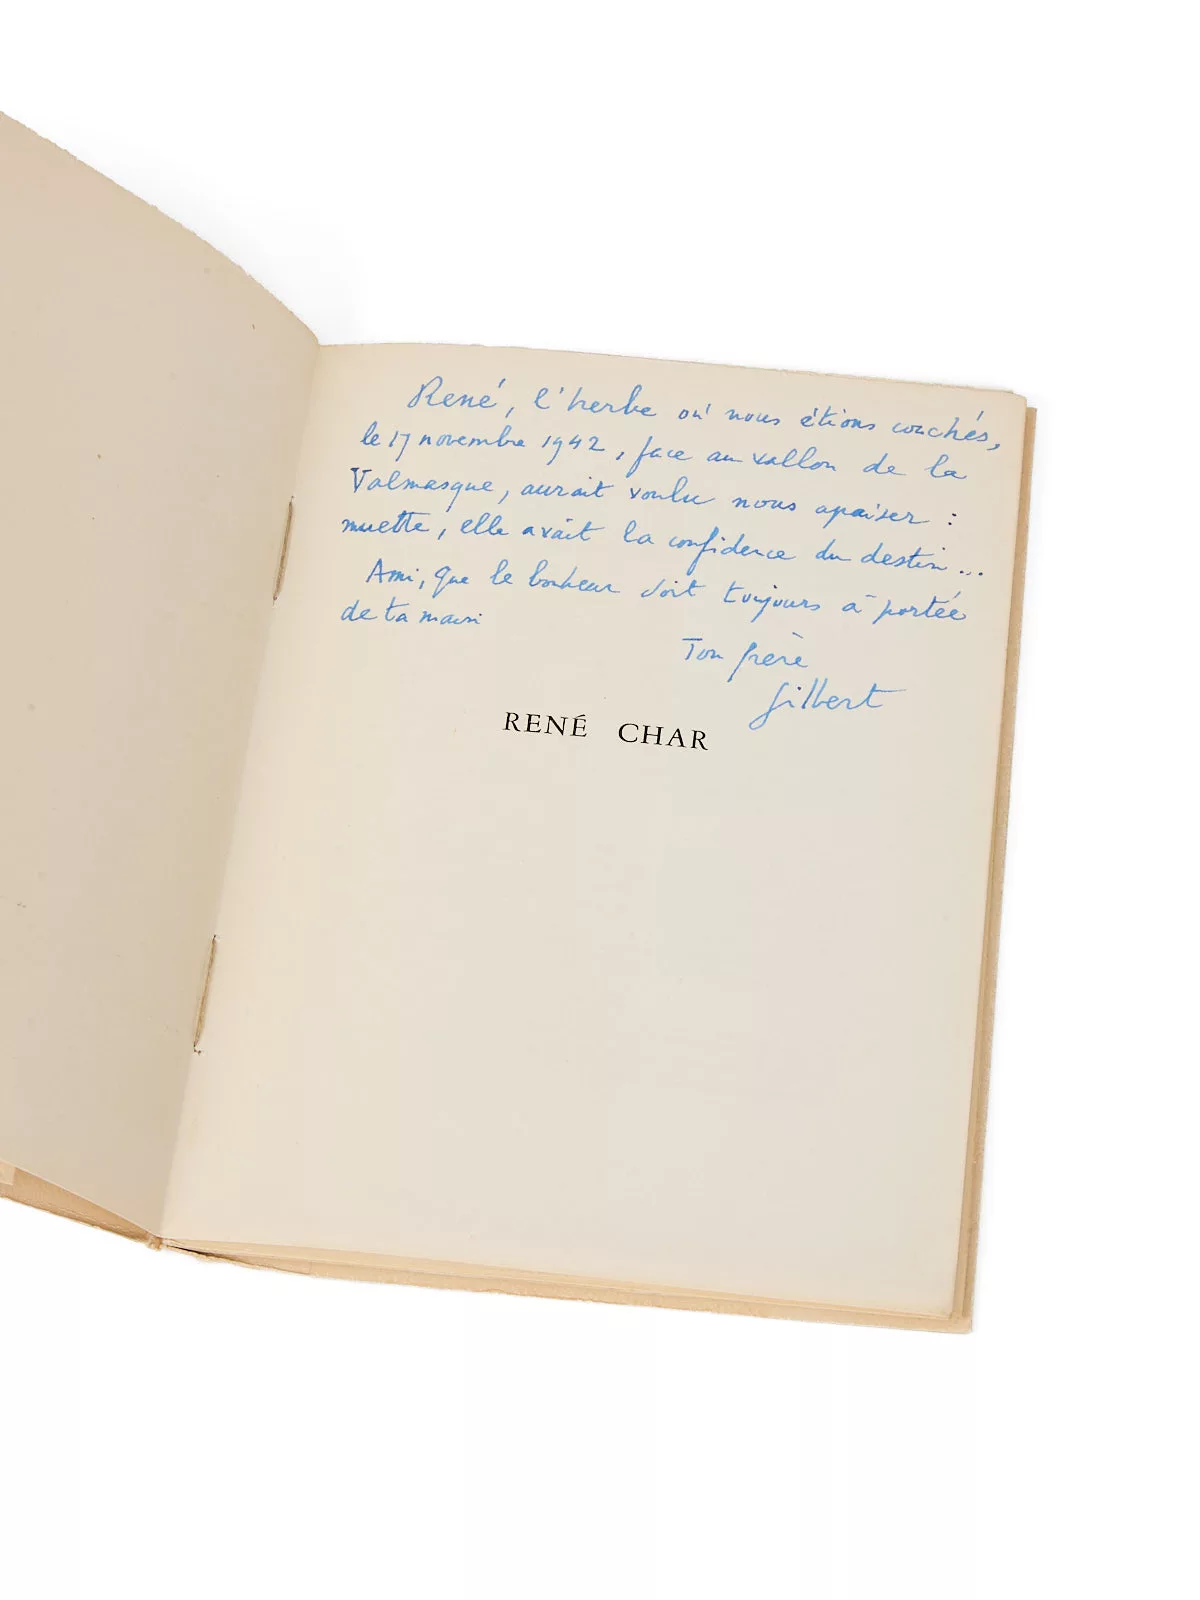 René, l'herbe où nous étions couchés,
le 17 novembre 1942, face au vallon de la
Valmasque, aurait voulu nous apaiser :
muette, elle avait la confidence du destin...
Ami, que le bonheur soit toujours à portée
de ta main
Ton frère
Gilbert
RENÉ CHAR